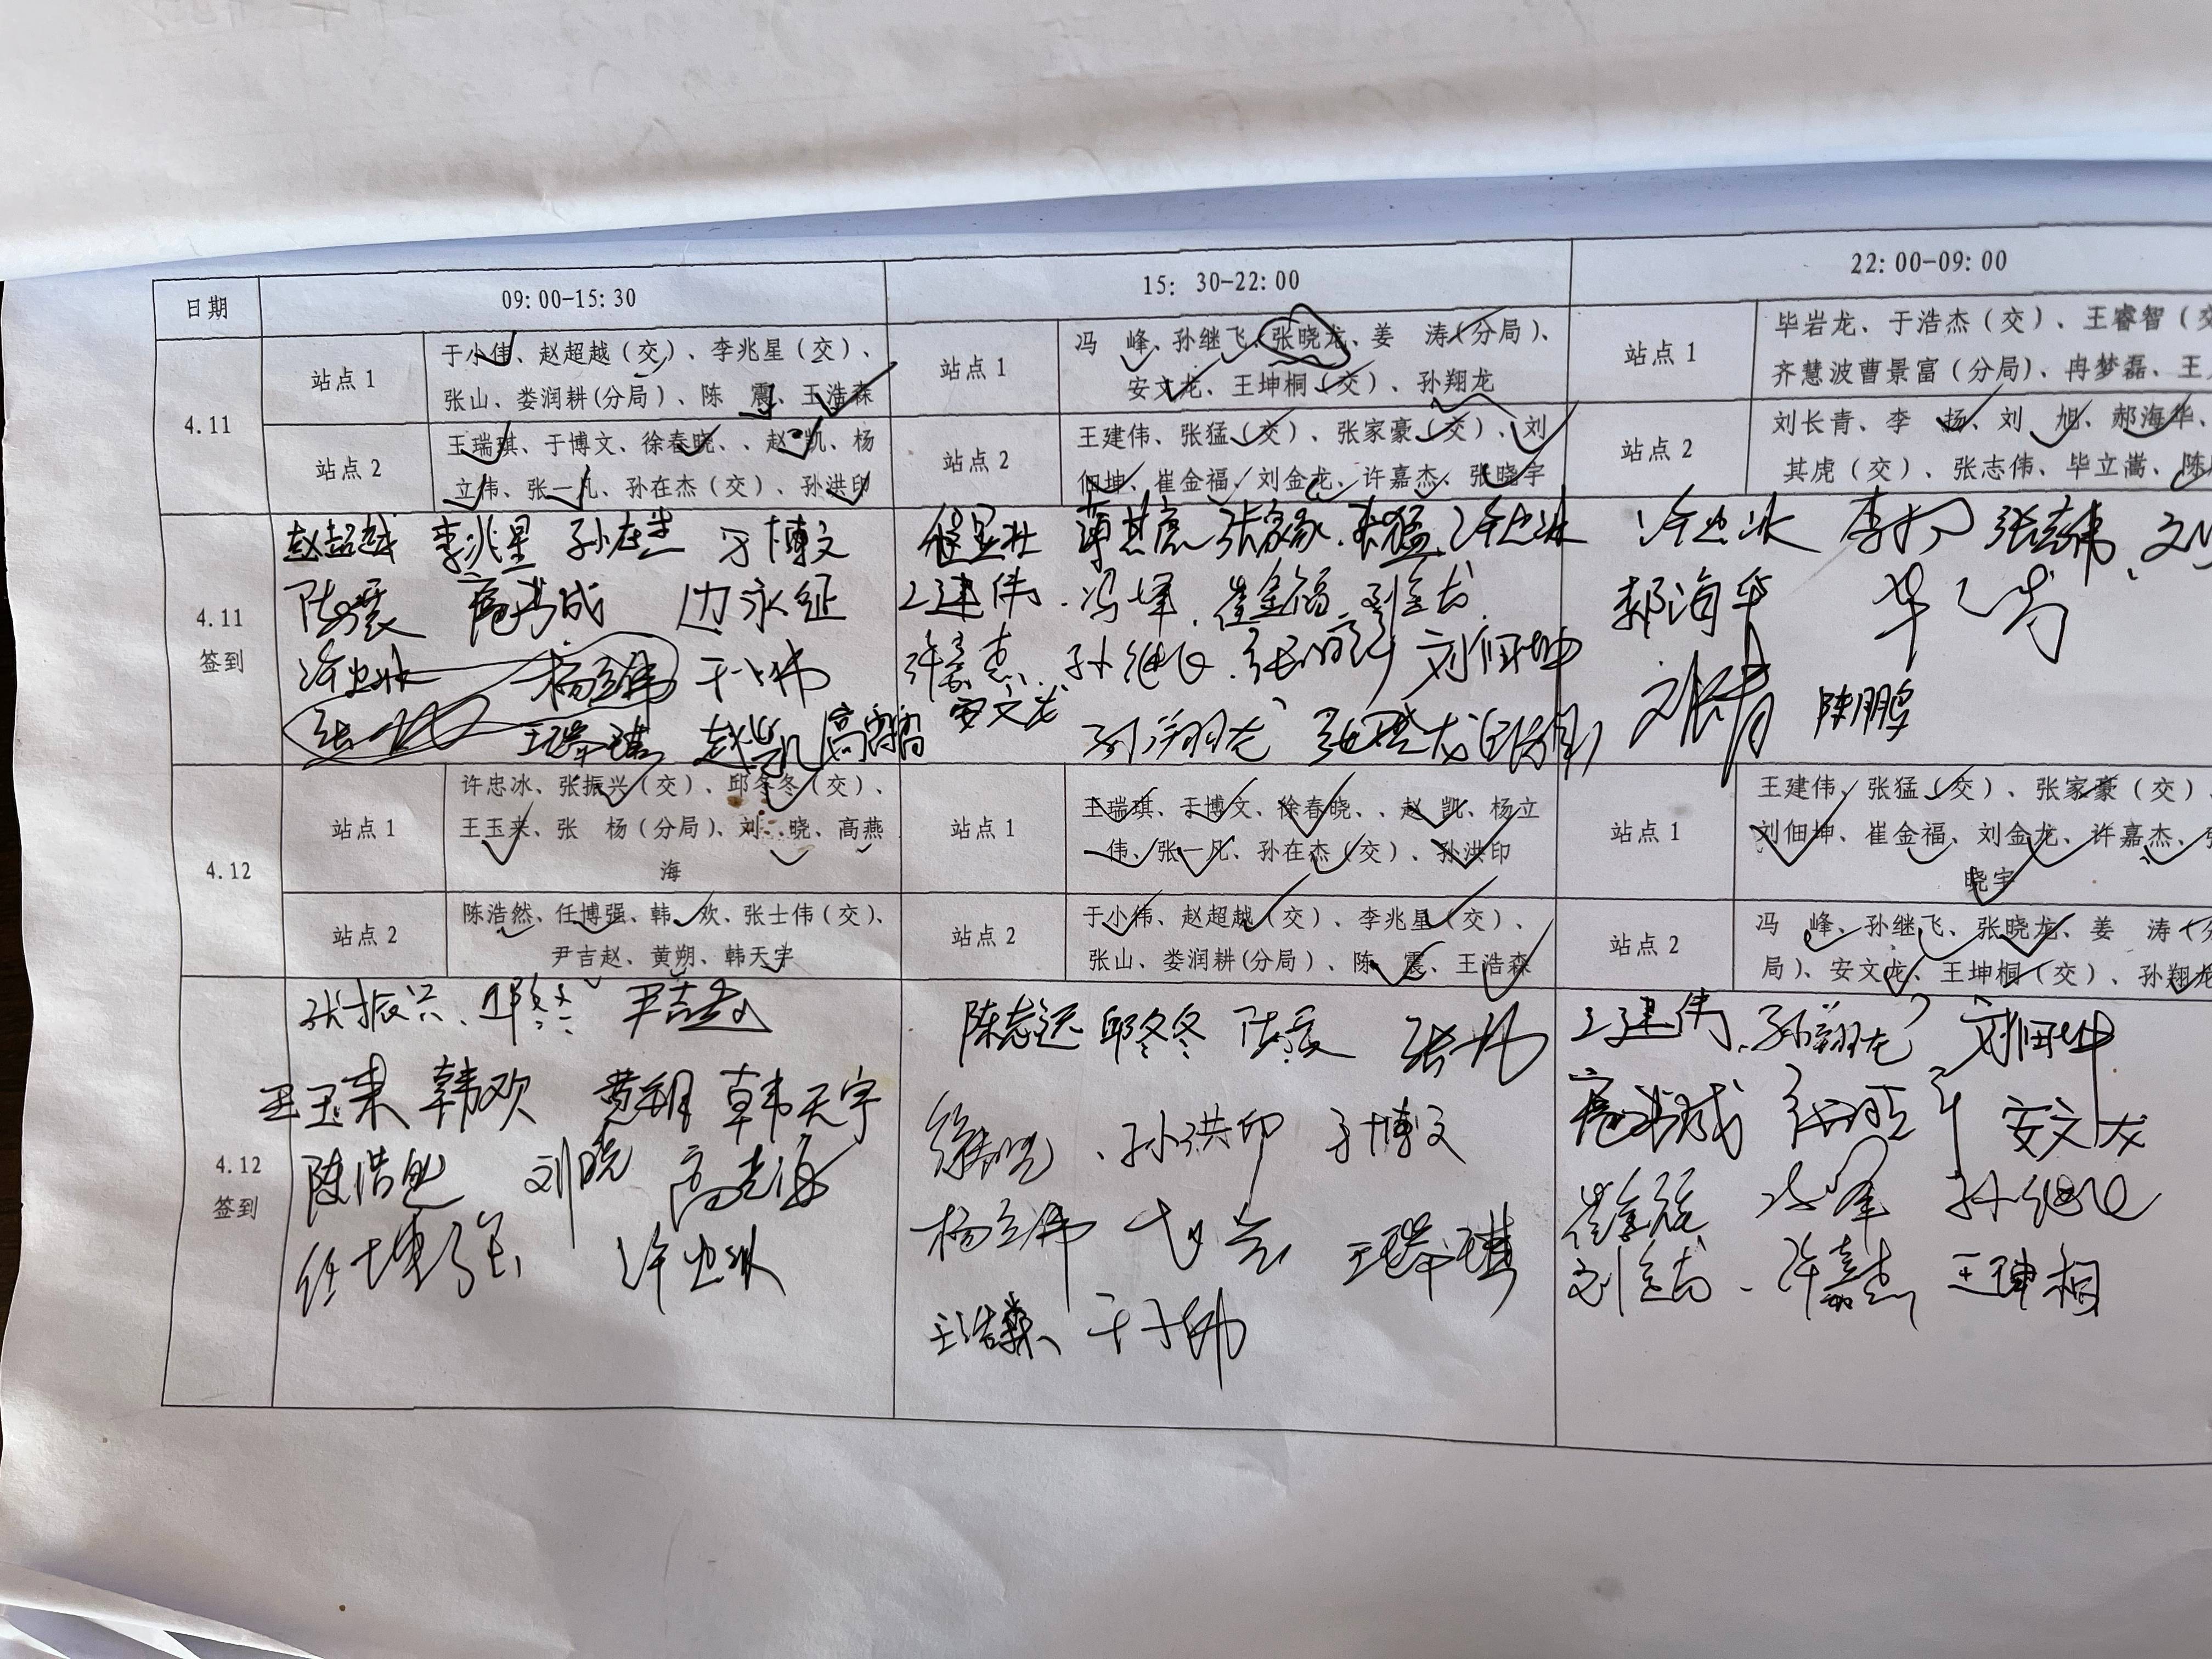 日期 09:00-15:30 15:30-22:00 22:00-09:00
4.11
站点1
于小伟、赵超越（交）、李兆星（交）、
张山、娄润耕(分局)、陈 震、王浩森
站点1
冯 峰、孙继飞、张晓龙、姜 涛(分局)、
安文龙、王坤桐（交）、孙翔龙
站点1
毕岩龙、于浩杰（交）、王睿智（交
齐慧波曹景富（分局）、冉梦磊、王
站点2
王瑞琪、于博文、徐春晓、、赵 凯、杨
立伟、张一凡、孙在杰（交）、孙洪印
站点2
王建伟、张猛（交）、张家豪（交）、刘
佃坤、崔金福、刘金龙、许嘉杰、张晓宇
站点2
刘长青、李 扬、刘 旭、郝海华、
其虎（交）、张志伟、毕立嵩、陈
4.11
签到
赵超越 李兆星 孙在杰 于博文
陈震 庞兴成 边永征
许忠冰 杨立伟 于小伟
王瑞琪 赵凯
张家豪、张猛、许忠冰
王建伟、冯峰、崔金福、刘金龙
许嘉杰、孙继飞、刘佃坤
安文龙 孙翔龙
许忠冰 李扬 张志伟、
郝海华
刘长青 陈鹏
4.12
站点1
许忠冰、张振兴（交）、邱冬冬（交）、
王玉来、张 杨(分局)、刘 晓、高燕
海
站点1
王瑞琪、于博文、徐春晓、、赵 凯、杨立
伟、张一凡、孙在杰（交）、孙洪印
站点1
王建伟、张猛（交）、张家豪（交）、
刘佃坤、崔金福、刘金龙、许嘉杰、张
晓宇
站点2
陈浩然、任博强、韩 欢、张士伟（交）、
尹吉赵、黄朔、韩天宇
站点2
于小伟、赵超越（交）、李兆星（交）、
张山、娄润耕(分局)、陈 震、王浩森
站点2
冯 峰、孙继飞、张晓龙、姜 涛（分
局）、安文龙、王坤桐（交）、孙翔龙
4.12
签到
张振兴、邱冬冬 尹吉赵
王玉来 韩欢 黄朔 韩天宇
陈浩然 刘晓 高燕海
任博强 许忠冰
陈志远 邱冬冬 陈震
徐春晓、孙洪印 于博文
杨立伟 王瑞琪
王浩森 于小伟
王建伟、孙翔龙 刘佃坤
庞兴成 安文龙
崔金福 冯峰 孙继飞
刘金龙、许嘉杰 王坤桐